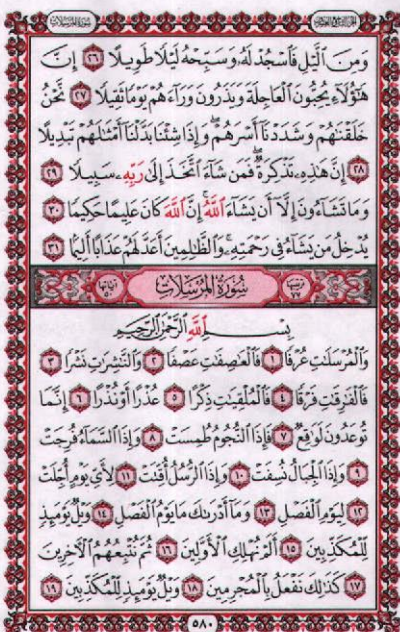 الجزء التاسع والعشرون
سورة المرسلات
وَمِنَ ٱلَّيْلِ فَٱسْجُدْ لَهُۥ وَسَبِّحْهُ لَيْلًا طَوِيلًا ٢٦ إِنَّ
هَٰٓؤُلَآءِ يُحِبُّونَ ٱلْعَاجِلَةَ وَيَذَرُونَ وَرَآءَهُمْ يَوْمًا ثَقِيلًا ٢٧ نَّحْنُ
خَلَقْنَٰهُمْ وَشَدَدْنَآ أَسْرَهُمْ ۖ وَإِذَا شِئْنَا بَدَّلْنَآ أَمْثَٰلَهُمْ تَبْدِيلًا
٢٨ إِنَّ هَٰذِهِۦ تَذْكِرَةٌ ۖ فَمَن شَآءَ ٱتَّخَذَ إِلَىٰ رَبِّهِۦ سَبِيلًا ٢٩
وَمَا تَشَآءُونَ إِلَّآ أَن يَشَآءَ ٱللَّهُ ۚ إِنَّ ٱللَّهَ كَانَ عَلِيمًا حَكِيمًا ٣٠
يُدْخِلُ مَن يَشَآءُ فِى رَحْمَتِهِۦ ۚ وَٱلظَّٰلِمِينَ أَعَدَّ لَهُمْ عَذَابًا أَلِيمًا ٣١
ترتيبها ٧٧ سُورَةُ المُرْسَلَاتِ آياتها ٥٠
بِسْمِ ٱللَّهِ ٱلرَّحْمَٰنِ ٱلرَّحِيمِ
وَٱلْمُرْسَلَٰتِ عُرْفًا ١ فَٱلْعَٰصِفَٰتِ عَصْفًا ٢ وَٱلنَّٰشِرَٰتِ نَشْرًا ٣
فَٱلْفَٰرِقَٰتِ فَرْقًا ٤ فَٱلْمُلْقِيَٰتِ ذِكْرًا ٥ عُذْرًا أَوْ نُذْرًا ٦ إِنَّمَا
تُوعَدُونَ لَوَٰقِعٌ ٧ فَإِذَا ٱلنُّجُومُ طُمِسَتْ ٨ وَإِذَا ٱلسَّمَآءُ فُرِجَتْ
٩ وَإِذَا ٱلْجِبَالُ نُسِفَتْ ١٠ وَإِذَا ٱلرُّسُلُ أُقِّتَتْ ١١ لِأَىِّ يَوْمٍ أُجِّلَتْ
١٢ لِيَوْمِ ٱلْفَصْلِ ١٣ وَمَآ أَدْرَىٰكَ مَا يَوْمُ ٱلْفَصْلِ ١٤ وَيْلٌ يَوْمَئِذٍ
لِّلْمُكَذِّبِينَ ١٥ أَلَمْ نُهْلِكِ ٱلْأَوَّلِينَ ١٦ ثُمَّ نُتْبِعُهُمُ ٱلْءَاخِرِينَ
١٧ كَذَٰلِكَ نَفْعَلُ بِٱلْمُجْرِمِينَ ١٨ وَيْلٌ يَوْمَئِذٍ لِّلْمُكَذِّبِينَ ١٩
٥٨٠